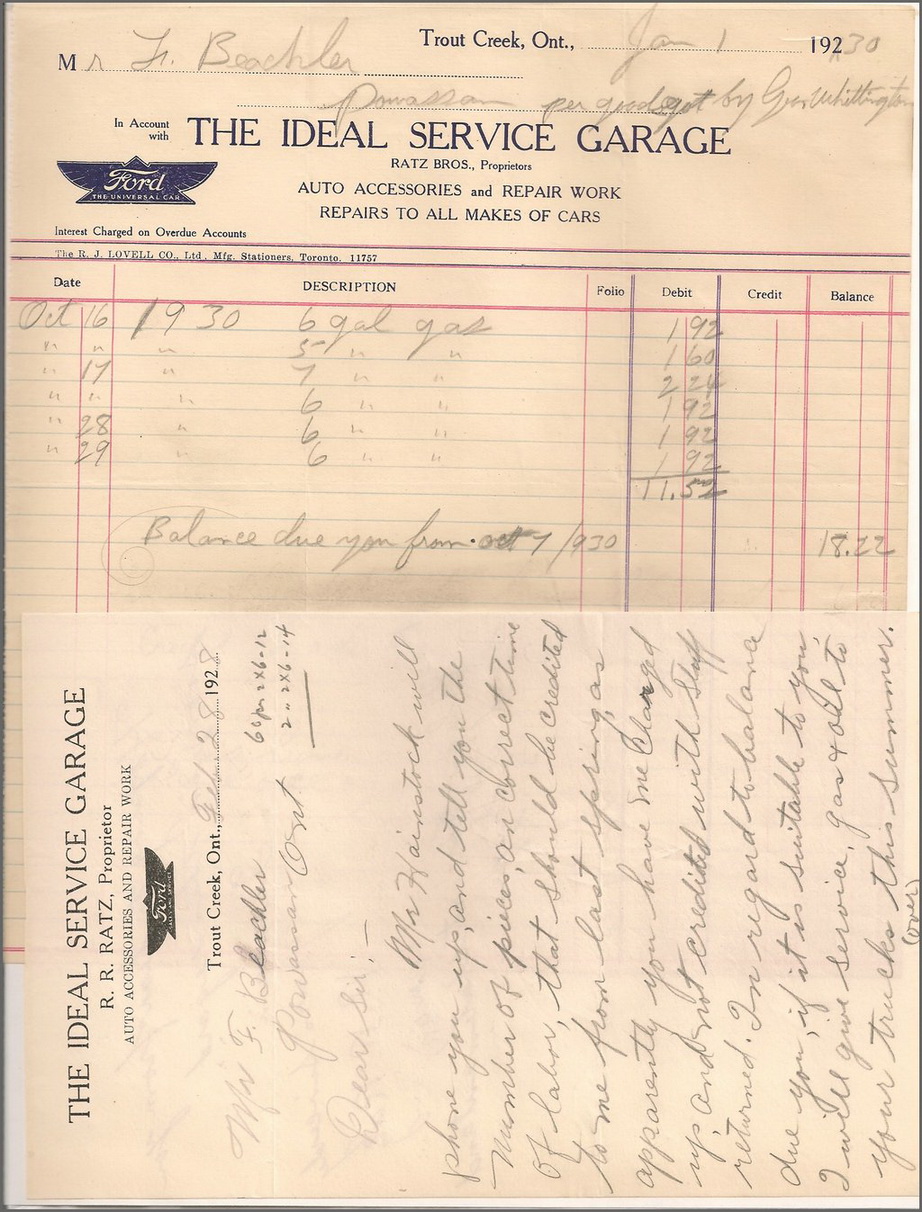 Trout Creek, Ont., Jan 1 1930
Mr F. Beachler
Powassan per goods got by Geo Whittington
In Account
with
THE IDEAL SERVICE GARAGE
RATZ BROS., Proprietors
Ford
THE UNIVERSAL CAR
AUTO ACCESSORIES and REPAIR WORK
REPAIRS TO ALL MAKES OF CARS
Interest Charged on Overdue Accounts
The R. J. LOVELL CO., Ltd., Mfg. Stationers, Toronto. 11757
Date DESCRIPTION Folio Debit Credit Balance
Oct 16 1930 6 gal gas 1 92
" " " 5 " " 1 60
" 17 " 7 " " 2 24
" " " 6 " " 1 92
" 28 " 6 " " 1 92
" 29 " 6 " " 1 92
11.52
Balance due you from Oct 7/1930 18.22
THE IDEAL SERVICE GARAGE
R. R. RATZ, Proprietor
AUTO ACCESSORIES AND REPAIR WORK
Ford
Trout Creek, Ont., Feb 28 1928
Mr F. Beachler
Powassan Ont
2x6-12
2 " 2x6-14
Dear Sir: —
Mr Hainstock will
phone you up, and tell you the
number of pieces, an correct time
of labor, that should be credited
to me from last spring, as
apparently you have me charged
up, and not credited with stuff
returned. In regard to balance
due you, if it is suitable to you,
I will give service, gas & oil to
your trucks this summer.
(over)